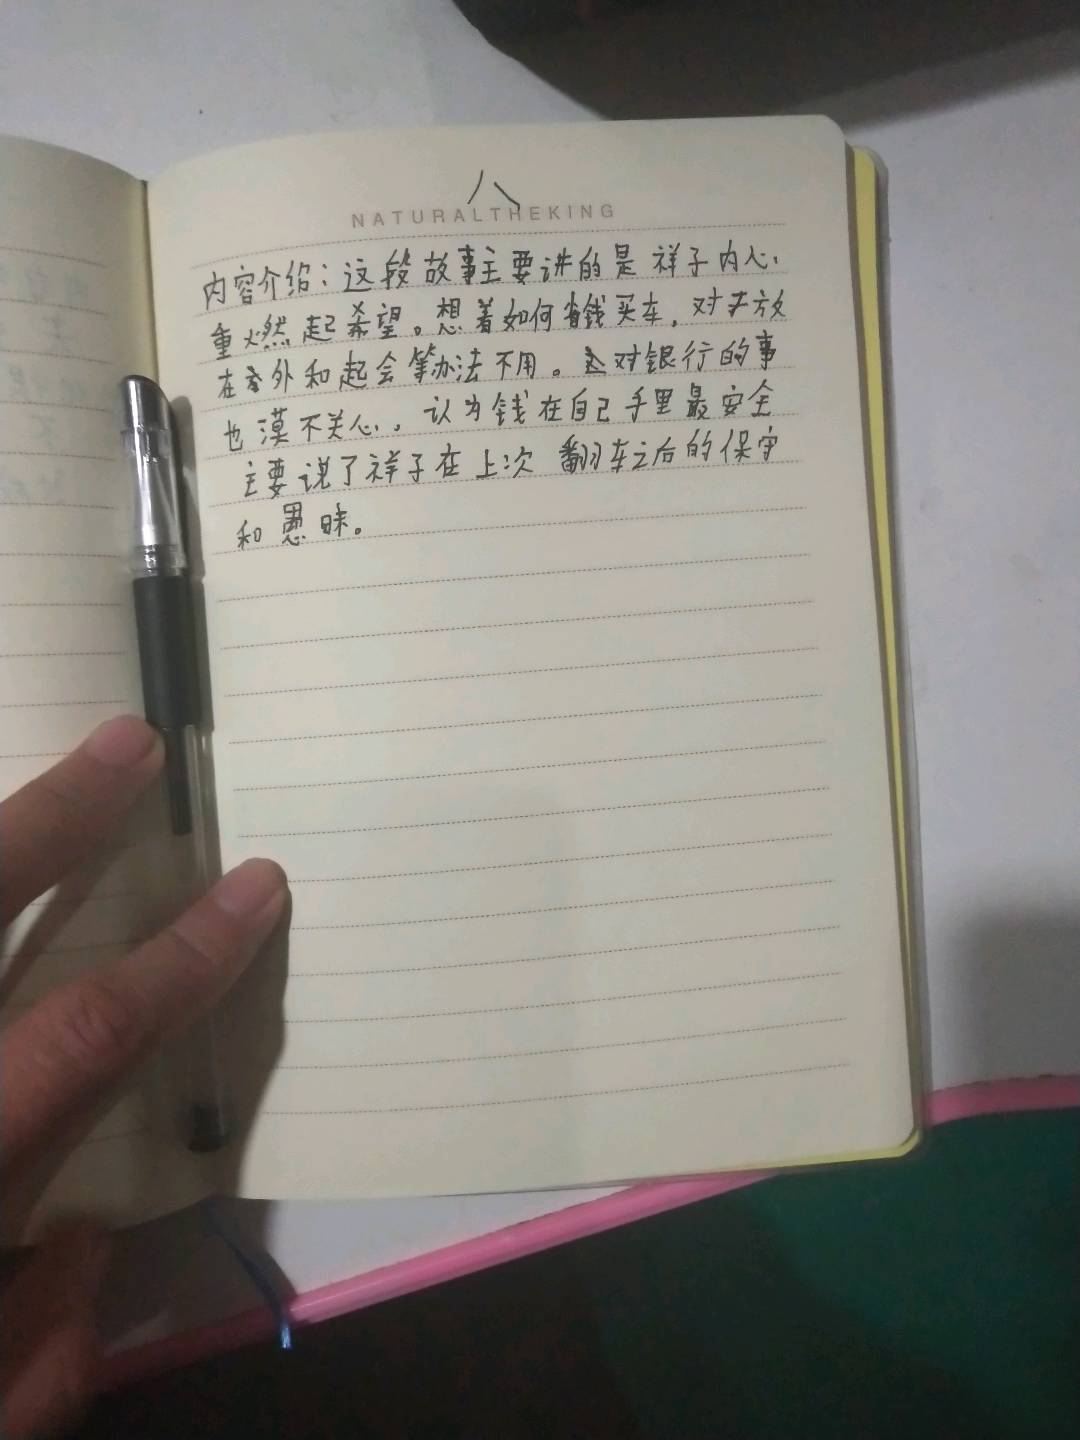 八
NATURALTHEKING
内容介绍：这段故事主要讲的是祥子内心
重燃起希望。想着如何省钱买车，对于放
在外和起会等办法不用。对银行的事
也漠不关心。认为钱在自己手里最安全
主要说了祥子在上次翻车之后的保守
和愚昧。